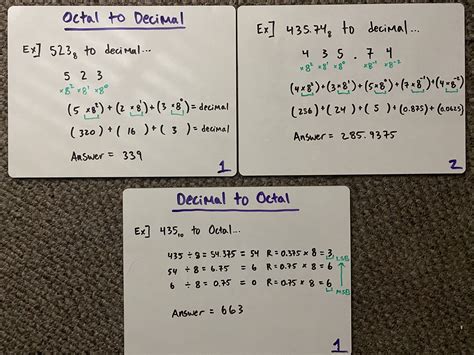 Octal to Decimal
Ex] 523₈ to decimal...
5 2 3
×8² ×8¹ ×8⁰
(5 × 8²) + (2 × 8¹) + (3 × 8⁰) = decimal
( 320 ) + ( 16 ) + ( 3 ) = decimal
Answer = 339
1
Ex] 435.74₈ to decimal...
4 3 5 . 7 4
×8² ×8¹ ×8⁰ ×8⁻¹ ×8⁻²
(4×8²)+(3×8¹)+(5×8⁰)+(7×8⁻¹)+(4×8⁻²)
(256)+(24)+(5)+(0.875)+(0.0625)
Answer = 285.9375
2
Decimal to Octal
Ex] 435₁₀ to Octal...
435 ÷ 8 = 54.375 = 54 R = 0.375 × 8 = 3 LSB
54 ÷ 8 = 6.75 = 6 R = 0.75 × 8 = 6
6 ÷ 8 = 0.75 = 0 R = 0.75 × 8 = 6 MSB
Answer = 663
1